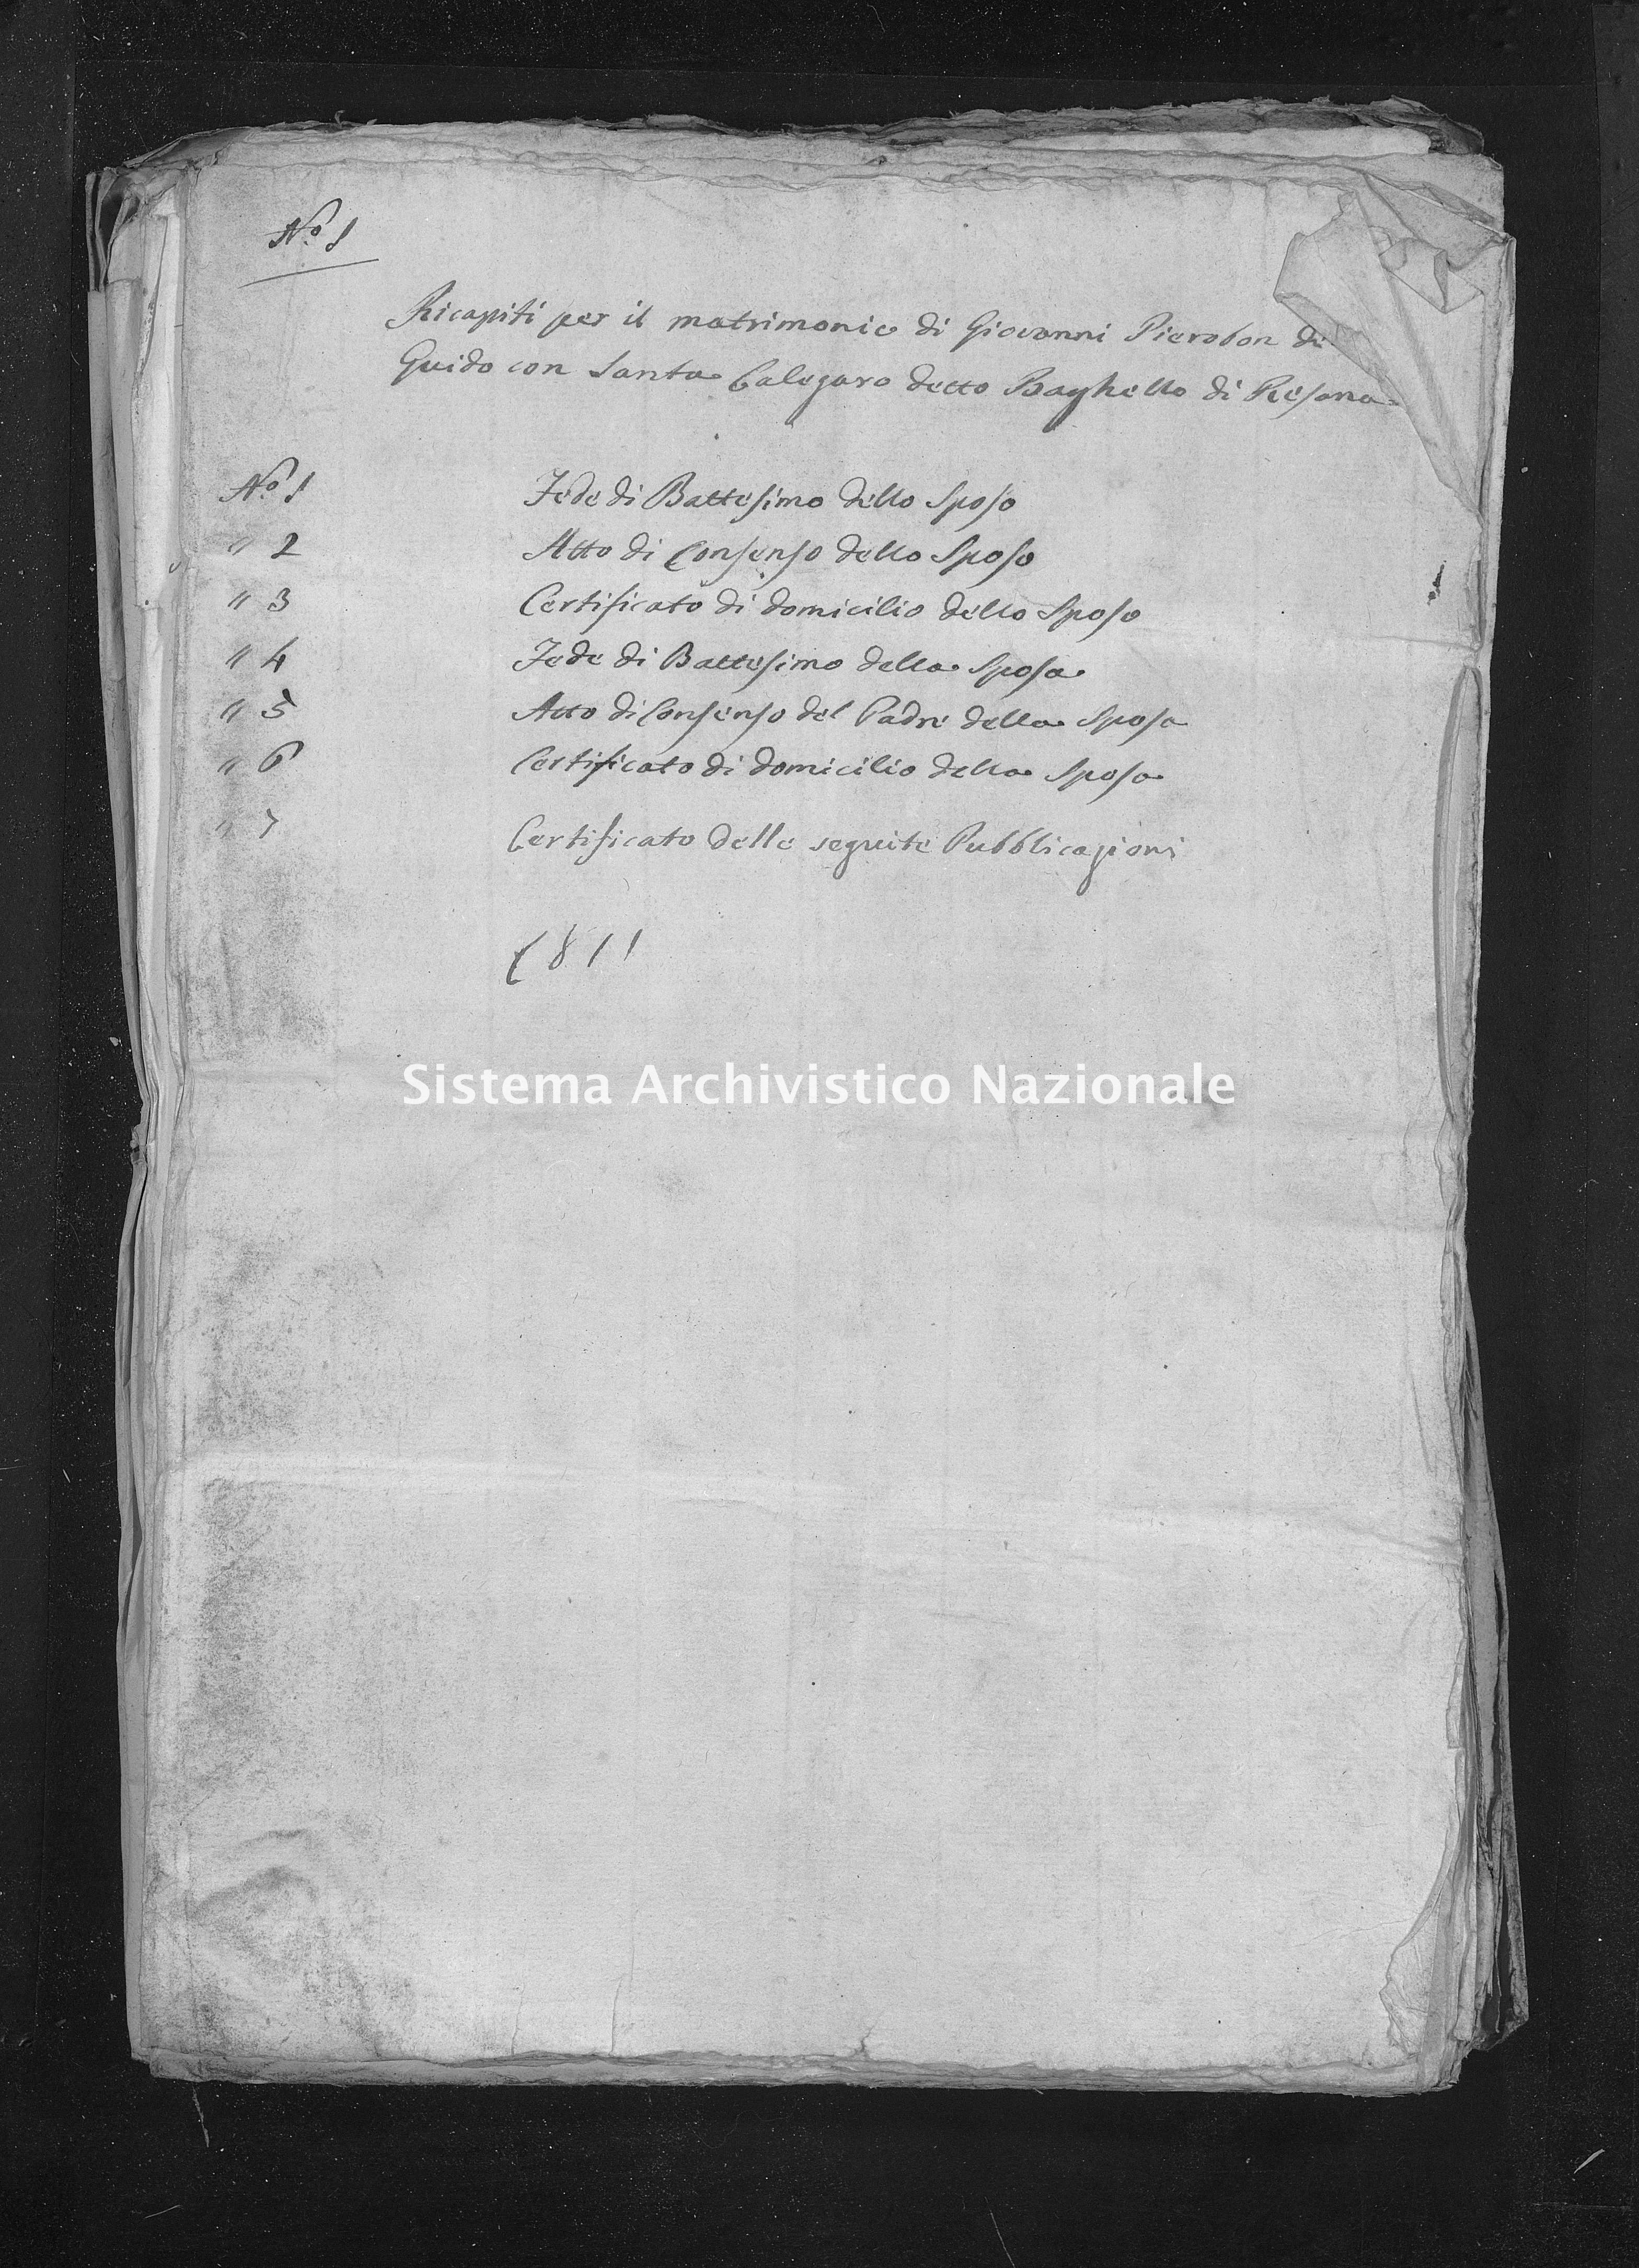 No. 1
Ricapiti per il matrimonio di Giovanni Pierobon di
Guido con Santa Calegaro detto Baghello di Resana
No. 1 Fede di Battesimo dello Sposo
" 2 Atto di Consenso dello Sposo
" 3 Certificato di domicilio dello Sposo
" 4 Fede di Battesimo della Sposa
" 5 Atto di Consenso del Padre della Sposa
" 6 Certificato di domicilio della Sposa
" 7 Certificato delle seguite Pubblicazioni
1811
Sistema Archivistico Nazionale